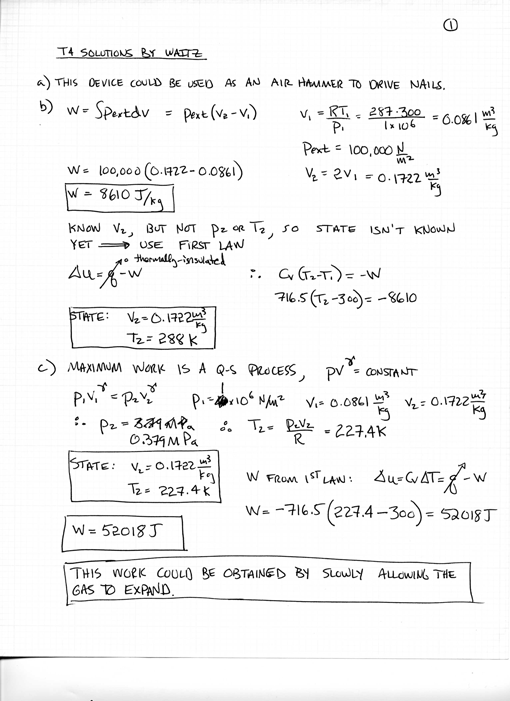 ①
T4 SOLUTIONS BY WAITZ
a) THIS DEVICE COULD BE USED AS AN AIR HAMMER TO DRIVE NAILS.
b) W = ∫Pextdv = Pext(V₂-V₁) V₁ = RT₁/P₁ = 287·300/1×10⁶ = 0.0861 m³/kg
Pext = 100,000 N/m²
W = 100,000(0.1722-0.0861) V₂ = 2V₁ = 0.1722 m³/kg
W = 8610 J/kg
KNOW V₂, BUT NOT P₂ OR T₂, SO STATE ISN'T KNOWN
YET ⟹ USE FIRST LAW
Δu = q - W o thermally-insulated ∴ Cv(T₂-T₁) = -W
716.5(T₂-300) = -8610
STATE: V₂ = 0.1722 m³/kg
T₂ = 288 K
c) MAXIMUM WORK IS A Q-S PROCESS, PV^γ = CONSTANT
P₁V₁^γ = P₂V₂^γ P₁ = 1×10⁶ N/m² V₁ = 0.0861 m³/kg V₂ = 0.1722 m³/kg
∴ P₂ = 0.379 MPa ∴ T₂ = P₂V₂/R = 227.4K
STATE: V₂ = 0.1722 m³/kg
T₂ = 227.4 K
W FROM 1ST LAW: Δu = CvΔT = q - W
W = -716.5(227.4-300) = 52018J
W = 52018 J
THIS WORK COULD BE OBTAINED BY SLOWLY ALLOWING THE
GAS TO EXPAND.